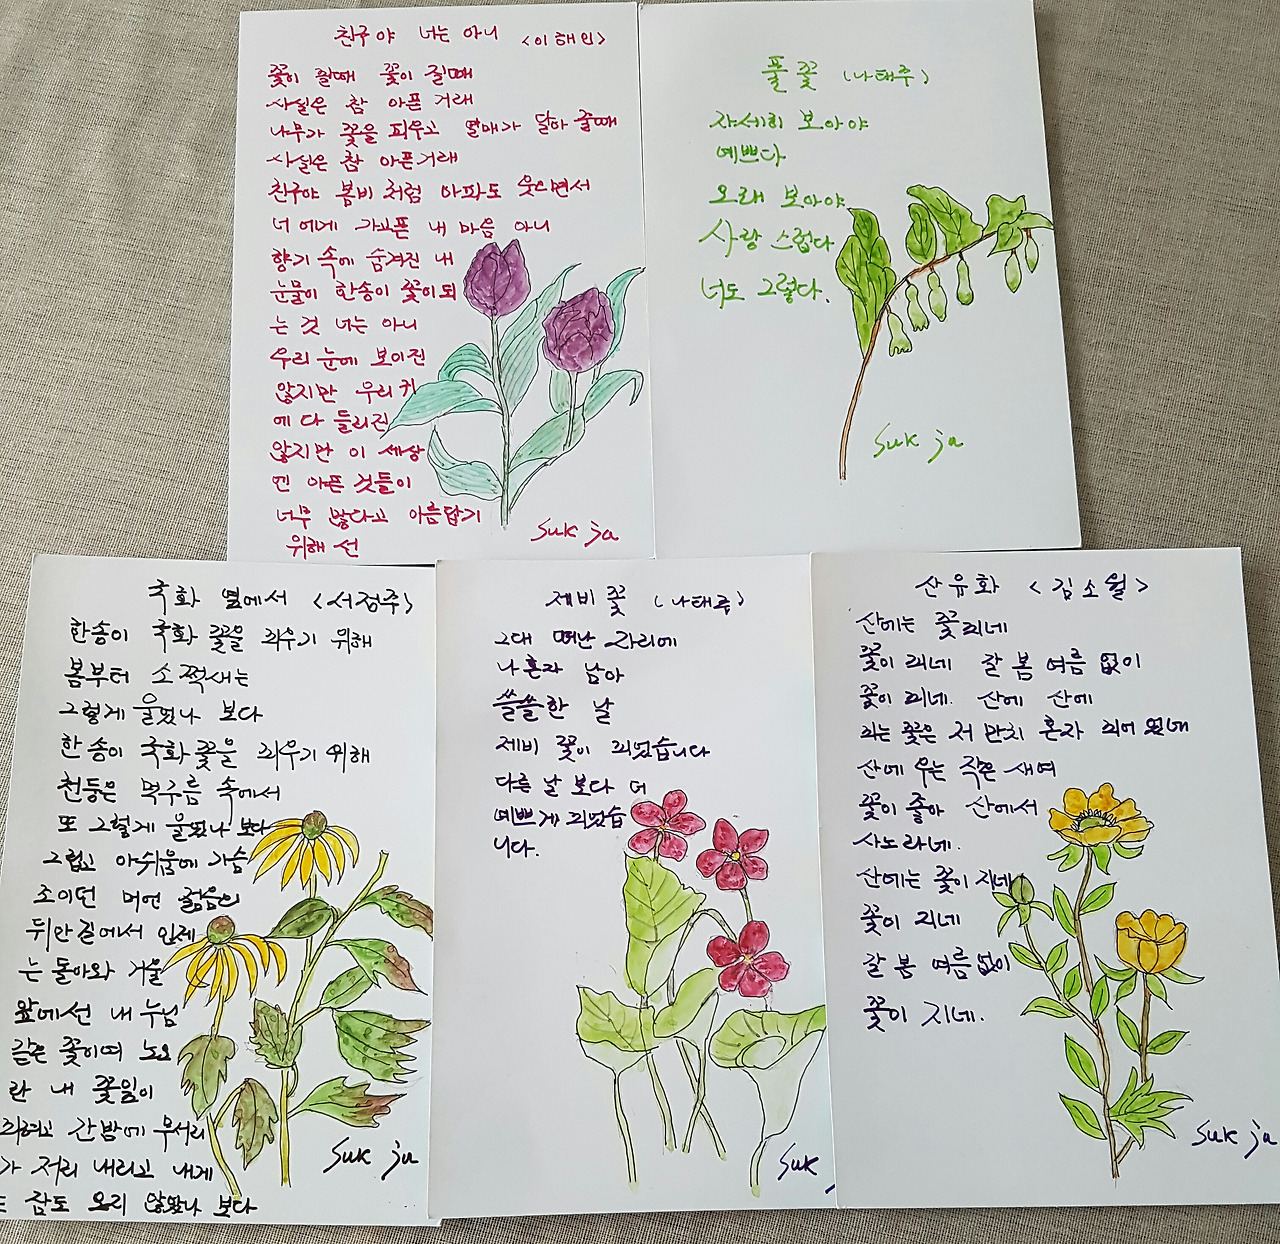 친구야 너는 아니 <이해인>
꽃이 필때 꽃이 질때
사실은 참 아픈 거래
나무가 꽃을 피우고 열매가 달아 줄때
사실은 참 아픈거래
친구야 봄비 처럼 아파도 웃으면서
너에게 가고픈 내 마음 아니
향기 속에 숨겨진 내
눈물이 한송이 꽃이되
는 것 너는 아니
우리 눈에 보이진
않지만 우리 귀
에 다 들리진
않지만 이 세상
엔 아픈 것들이
너무 많다고 아름답기
위해 선
Suk ja
풀꽃 (나태주)
자세히 보아야
예쁘다
오래 보아야
사랑 스럽다
너도 그렇다.
Suk ja
국화 옆에서 <서정주>
한송이 국화 꽃을 피우기 위해
봄부터 소쩍새는
그렇게 울었나 보다
한 송이 국화꽃을 피우기 위해
천둥은 먹구름 속에서
또 그렇게 울었나 보다
그립고 아쉬움에 가슴
조이던 머언 젊음의
뒤안길에서 인제
는 돌아와 거울
앞에선 내 누님
같은 꽃이여 노오
란 내 꽃잎이
피려고 간밤에 무서리
가 저리 내리고 내게
잠도 오지 않았나 보다
Suk ja
제비꽃 (나태주)
그대 떠난 자리에
나 혼자 남아
쓸쓸한 날
제비 꽃이 피었습니다
다른 날 보다 더
예쁘게 피었습
니다.
Suk
산유화 <김소월>
산에는 꽃피네
꽃이 피네 갈 봄 여름 없이
꽃이 피네. 산에 산에
피는 꽃은 저 만치 혼자 피어 있네
산에 우는 작은 새여
꽃이 좋아 산에서
사노라네.
산에는 꽃이 지네
꽃이 지네
갈 봄 여름 없이
꽃이 지네.
Suk ja